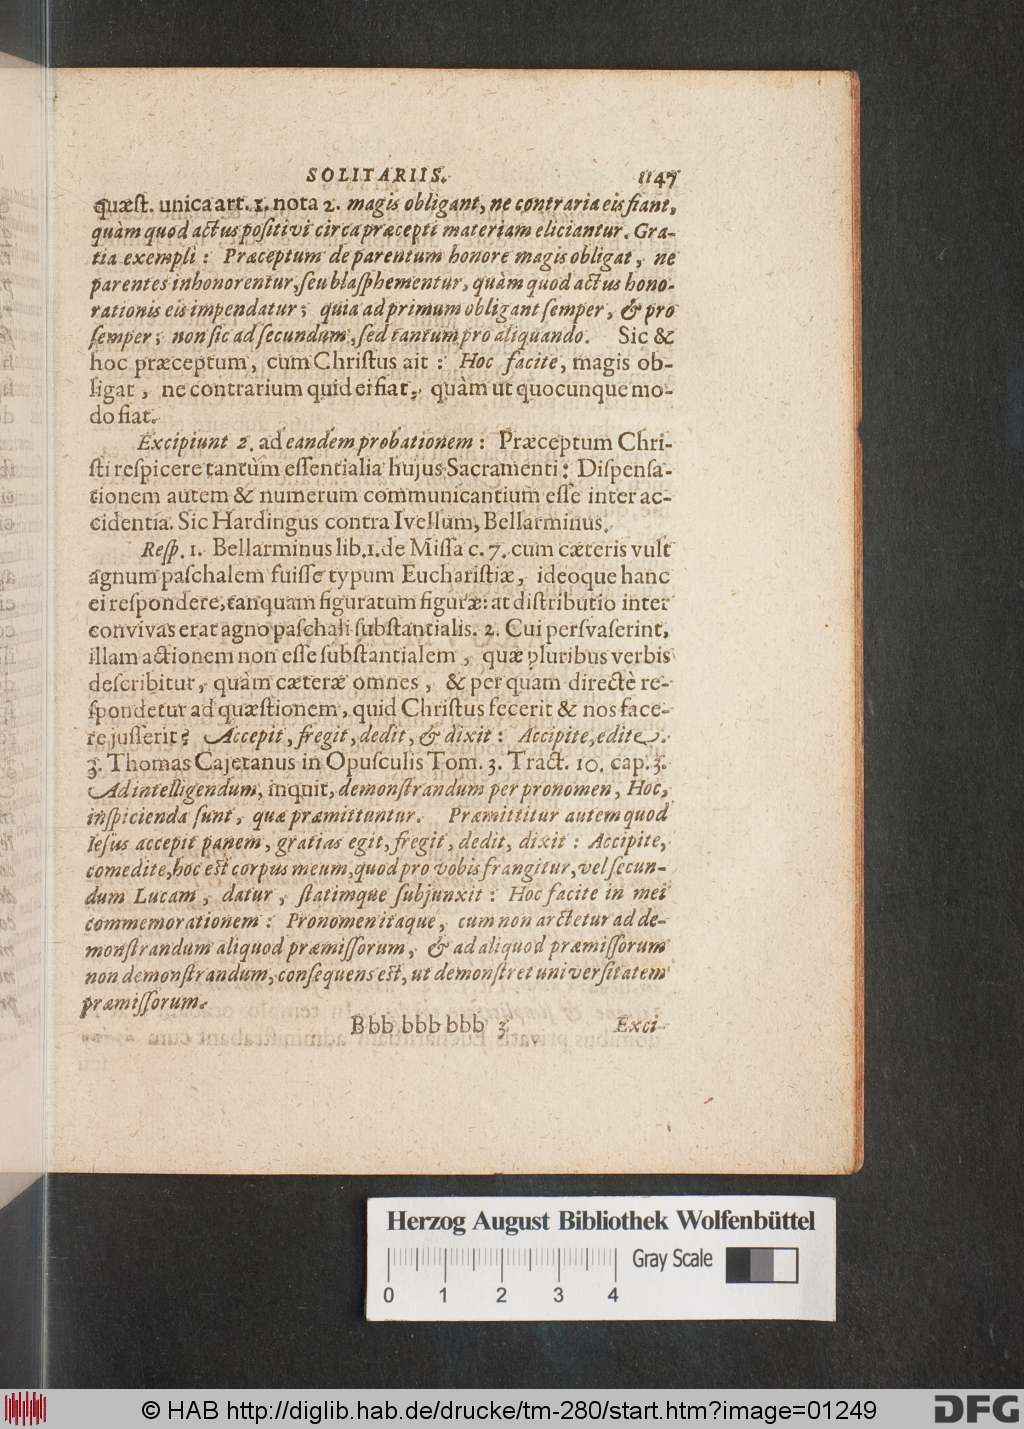 SOLITARIIS. 1147
quæſt. unica art. 1. nota 2. magis obligant, ne contraria eis fiant,
quàm quod actus poſitivi circa præcepti materiam eliciantur. Gra-
tia exempli: Præceptum de parentum honore magis obligat, ne
parentes inhonorentur, ſeu blaſphementur, quàm quod actus hono-
rationis eis impendatur; quia ad primum obligant ſemper, & pro
ſemper; non ſic ad ſecundum, ſed tantum pro aliquando. Sic &
hoc præceptum, cum Chriſtus ait: Hoc facite, magis ob-
ligat, ne contrarium quid ei fiat, quàm ut quocunque mo-
do fiat.
Excipiunt 2. ad eandem probationem: Præceptum Chri-
ſti reſpicere tantùm eſſentialia hujus Sacramenti: Diſpenſa-
tionem autem & numerum communicantium eſſe inter ac-
cidentia. Sic Hardingus contra Ivellum, Bellarminus.
Reſp. 1. Bellarminus lib. 1. de Miſſa c. 7. cum cæteris vult
agnum paſchalem fuiſſe typum Euchariſtiæ, ideoque hanc
ei reſpondere, tanquam figuratum figuræ: at diſtributio inter
convivas erat agno paſchali ſubſtantialis. 2. Cui perſvaſerint,
illam actionem non eſſe ſubſtantialem, quæ pluribus verbis
deſcribitur, quàm cæteræ omnes, & per quam directè re-
ſpondetur ad quæſtionem, quid Chriſtus fecerit & nos face-
re juſſerit? Accepit, fregit, dedit, & dixit: Accipite, edite.
3. Thomas Cajetanus in Opuſculis Tom. 3. Tract. 10. cap. 3.
Ad intelligendum, inquit, demonſtrandum per pronomen, Hoc,
inſpicienda ſunt, quæ præmittuntur. Præmittitur autem quod
Ieſus accepit panem, gratias egit, fregit, dedit, dixit: Accipite,
comedite, hoc eſt corpus meum, quod pro vobis frangitur, vel ſecun-
dum Lucam, datur, ſtatimque ſubjunxit: Hoc facite in mei
commemorationem: Pronomen itaque, cum non arctetur ad de-
monſtrandum aliquod præmiſſorum, & ad aliquod præmiſſorum
non demonſtrandum, conſequens eſt, ut demonſtret univerſitatem
præmiſſorum.
Bbb bbb bbb 3 Exci-
Herzog August Bibliothek Wolfenbüttel
Gray Scale
0 1 2 3 4
© HAB http://diglib.hab.de/drucke/tm-280/start.htm?image=01249
DFG